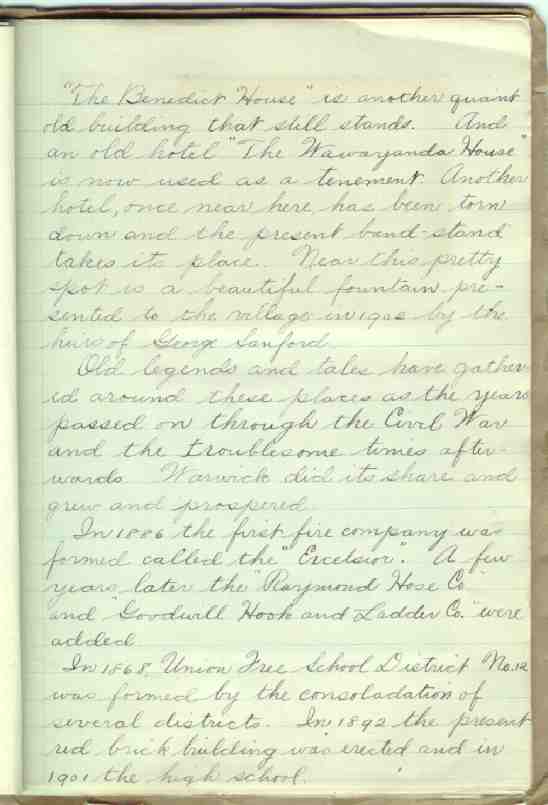 "The Benedict House" is another quant
old building that still stands. And
an old hotel "The Wawayanda House"
is now used as a tenement. Another
hotel, once near here has been torn
down and the present band-stand
takes its place. Near this pretty
spot is a beautiful fountain pre-
sented to the village in by the
heirs of George Sanford.
Old legends and tales have gather-
ed around these places as the years
passed on through the Civil War
and the troublesome times after-
wards. Warwick did its share and
grew and prospered.
In 1886 the first fire company was
formed called the "Excelsior". A few
years later the "Raymond Hose Co"
and "Goodwill Hook and Ladder Co." were
added.
In 1868, Union Free School District No. 12
was formed by the consoladation of
several districts. In 1892 the present
red brick building was erected and in
1901 the high school.